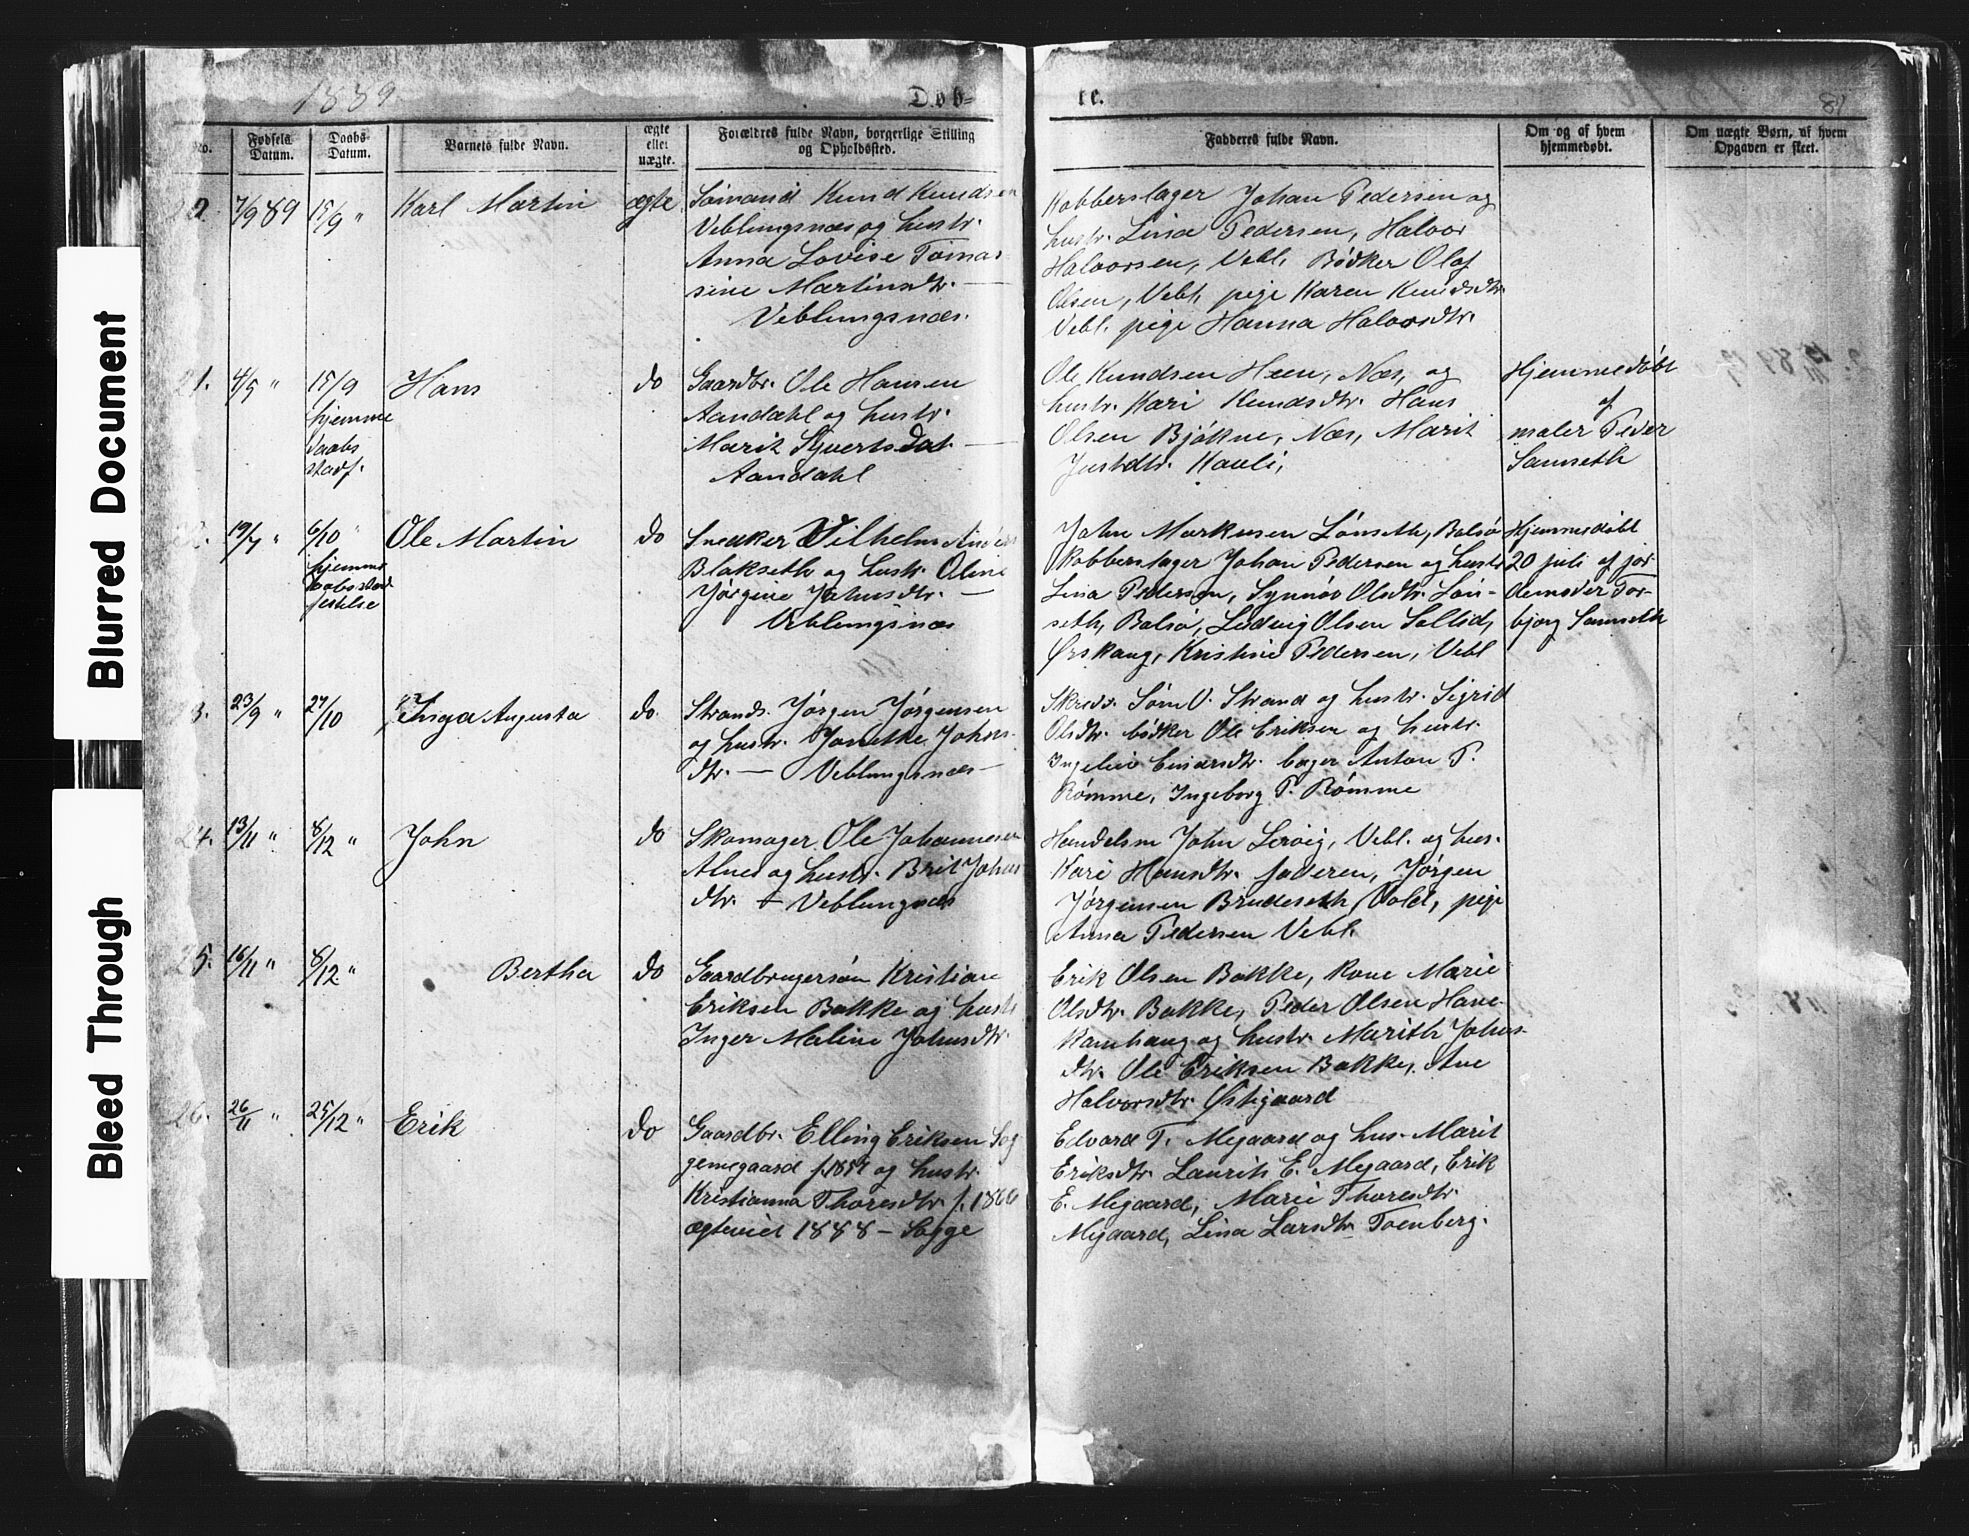 Blurred Document
Bleed Through
1889
Døb-
te.
81
No.
Fødsels Datum.
Daabs Datum.
Barnets fulde Navn.
ægte eller uægte.
Forældres fulde Navn, borgerlige Stilling og Opholdssted.
Fadderes fulde Navn.
Om og af hvem hjemmedøbt.
Om uægte Børn, af hvem Opgaven er skeet.
7/9 89
15/9 "
Karl Martin
ægte
Sømand Knud Knudsen
Veblungsnæs og hustr.
Anna Lovise Tomas-
sine Martinsdtr. —
Veblungsnæs.
Kobberslager Johan Pedersen og
hustr. Lina Pedersen, Halvor
Halvorsen, Vebl, Bødker Olaf
Olsen, Vebl, pige Karen Knudsdtr.
Vebl. pige Hanna Halvorsdtr.
21.
4/5 "
15/9
hjemme
daabs
stadf.
Hans
do
Gaardbr. Ole Hansen
Aandahl og hustr.
Marit Sjvertsdat. —
Aandahl
Ole Knudsen Heen, Næs, og
hustr. Kari Knudsdtr. Hans
Olsen Bjökne, Næs, Marit
Justdtr. Kavli,
Hjemmedøbt
af
maler Peder
Samseth
22.
19/7 "
6/10 "
hjemme
daabsstad
festelse
Ole Martin
do
Snedker Vilhelm Anders
Blakseth og hustr. Oline
Jörgine Johnsdtr. —
Veblungsnæs
John Markusen Lönseth, Bolsö
Kobberslager Johan Pedersen og hustr
Lina Pedersen, Synnöv Olsdtr. Lön-
seth, Bolsö, Ludvig Olsen Soltid,
Ørskaug, Kristine Pedersen, Vebl
Hjemmedöbt
20 juli af jor
demoder Tor-
bjorg Samseth
23.
23/9 "
27/10
Inga Augusta
do.
Strands. Jörgen Jörgensen
og hustr. Jonetke Johns-
dtr. — Veblungsnæs —
Skreds. Sörn O. Strand og hustr. Sigrid
Olsdtr. bödker Ole Eriksen og hustr.
Ingeliv Einarsdtr. bager Anton P.
Römme, Ingeborg P. Römme
24.
13/11 "
8/12 "
John
do
Skomager Ole Johannesen
Alnes og hustr. Brit Johns
dtr. — Veblungnæs
Handelsm John Lervig, Vebl. og hus.
Kari Hansdtr. faderen, Jörgen
Jörgensen Brudeseth, Vold, pige
Anna Pedersen Vebl.
25.
16/11 "
8/12 "
Bertha
do
Gaardbrugersön Kristian
Eriksen Bakke og hustr
Inger Maline Johnsdtr.
Erik Olsen Bakke, Kone Marie
Olsdtr. Bakke, Peder Olsen Have-
kamhaug og hustr. Marith Johns-
dtr. Ole Eriksen Bakke, Ane
Halvorsdtr. Østigaard
26.
26/11 "
25/12 "
Erik
do
Gaardbr. Elling Eriksen Sog
gemegaard f. 1857 og hustr.
Kristianna Thoresdtr. f. 1866
ægteviet 1888 — Sogge
Edvard T. Megaard og hus. Marit
Eriksdtr. Laurits E. Megaard, Erik
E. Megaard, Marie Thoresdtr.
Megaard, Lina Larsdtr. Toenberg.